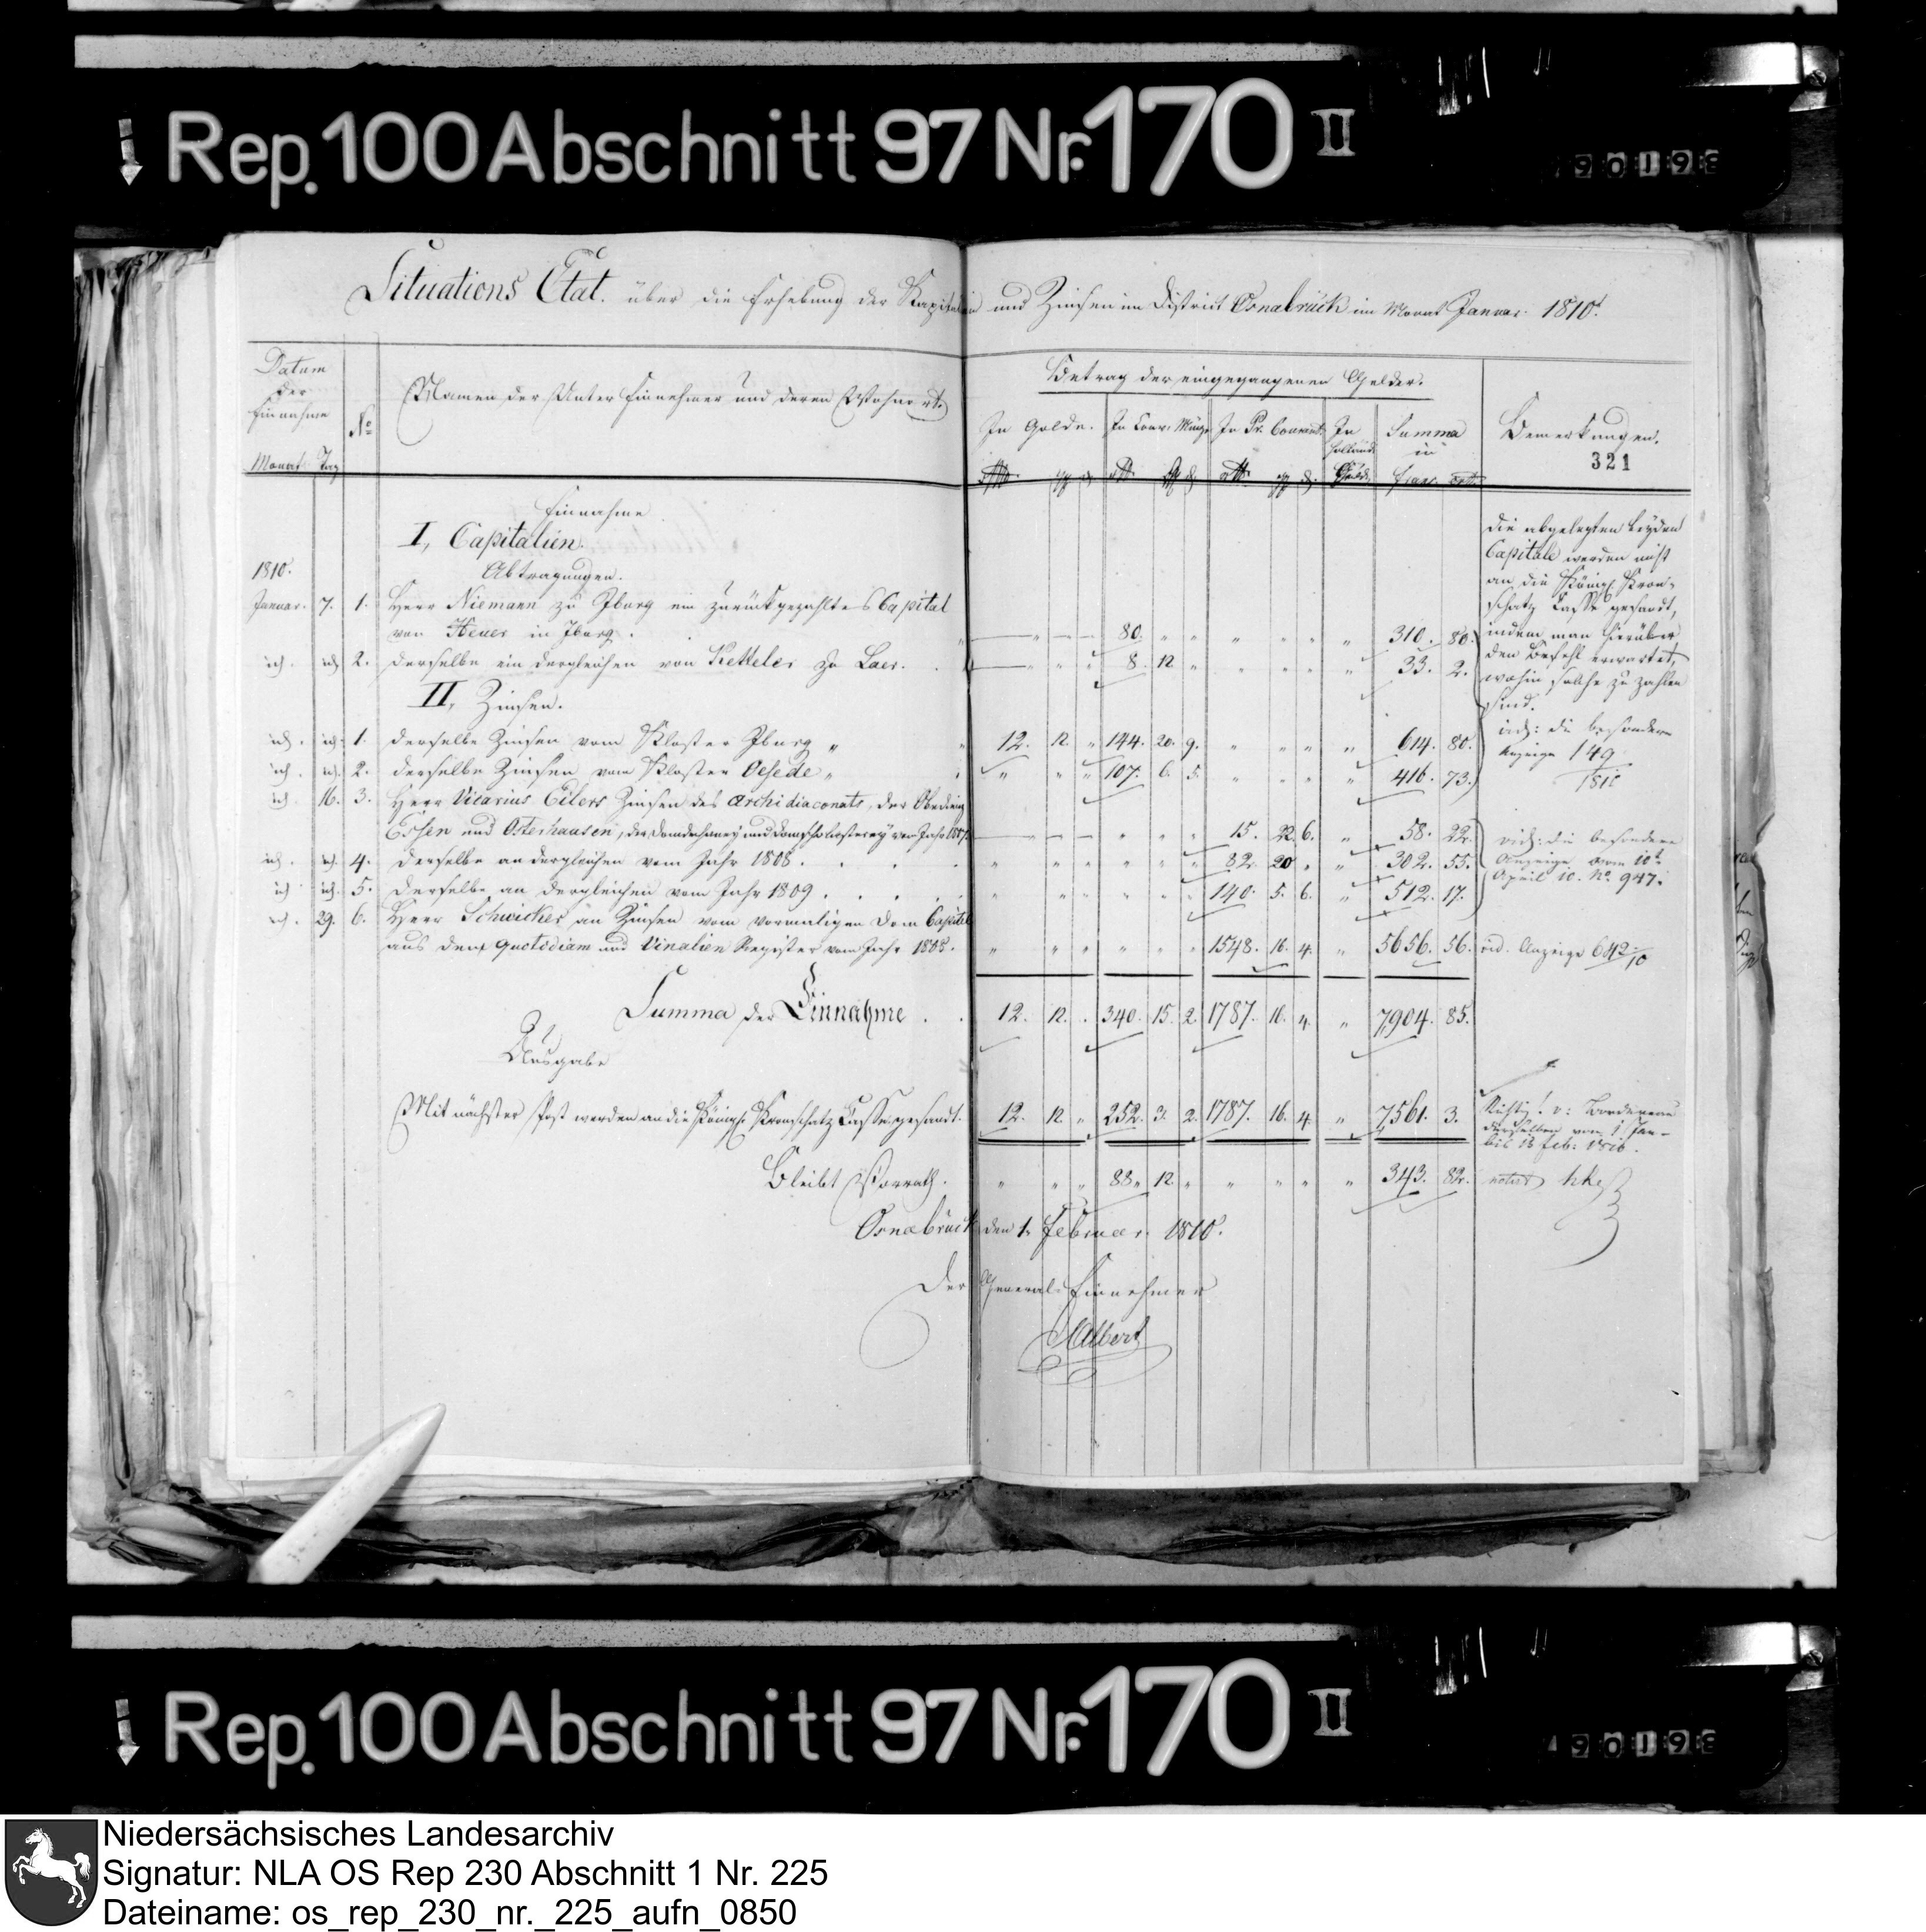 Rep. 100 Abschnitt 97 Nr. 170 II
90193
Situations Etat. über die Erhebung der Kapitalien und Zinsen im District Osnabrück im Monat Januar 1810.
Datum der Einnahme
Monat Tag
No
Namen der Unter Einnehmer und deren Wohnort.
Betrag der eingegangenen Gelder.
In Golde.
In Conv. Münze
In Pr. Courant.
In holländ. Guld.
Summa in Franc. Cent.
Bemerkungen.
321
Einnahme
I, Capitalien.
Abtragungen.
1810.
Januar. 7. 1. Herr Niemann zu Iburg ein zurückgezahltes Capital
von Heuer in Iburg. 80. " " " " " " 310. 80.
id. id. 2. Derselbe ein dergleichen von Ketteler zu Laer. 8. 12 " " " " " 33. 2.
Die abgelegten beyden
Capitale werden nicht
an die Königl. Kron-
schatz Casse gesandt,
indem man hierüber
den Befehl erwartet,
wohin solche zu zahlen
sind.
II, Zinsen.
id. id. 1. Derselbe Zinsen vom Kloster Iburg " 12. 12. " 144. 20. 9. " " " " 614. 80.
id. id. 2. Derselbe Zinsen vom Kloster Oesede " " " " 107. 6. 5. " " " " 416. 73.
vid: die besondere
Anzeige 149/1810
id. 16. 3. Herr Vicarius Eilers Zinsen des Archidiaconats, der Obedienz
Essen und Osterhausen, der Domdechaney und Domscholasterey vom Jahr 1807. " " " 15. 22. 6. " 58. 22.
id. id. 4. Derselbe an dergleichen vom Jahr 1808. " " " " " " 82. 20 " " 302. 55.
id. id. 5. Derselbe an dergleichen vom Jahr 1809. " " " " " " 140. 5. 6. " 512. 17.
vid: die besondere
Anzeige vom 10t
April 10. No. 947.
id. 29. 6. Herr Schwicker an Zinsen vom vormaligen Dom Capitel
aus dem Quotidiam und Vinalien Register vom Jahr 1808. " " " " " " 1548. 16. 4. " 5656. 56. vid. Anzeige 642/10
Summa der Einnahme . . 12. 12. . 340. 15. 2. 1787. 16. 4. " 7,904. 85.
Ausgabe
Mit nächster Post werden an die Königl. Kronschatz Casse gesandt. 12. 12. " 252. 3. 2. 1787. 16. 4. " 7,561. 3.
Richtig! v: Bordereau
desselben vom 1 Jan-
bis 13 feb: 1810.
Bleibt Vorrath. " " " 88 " 12. " " " " " 343. 82. notirt
Osnabrück den 1. Februar. 1810.
Der General-Einnehmer
Albert
Rep. 100 Abschnitt 97 Nr. 170 II
90193
Niedersächsisches Landesarchiv
Signatur: NLA OS Rep 230 Abschnitt 1 Nr. 225
Dateiname: os_rep_230_nr._225_aufn_0850